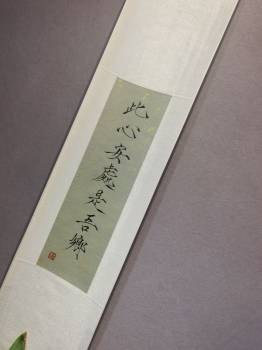 此心安處是吾鄉